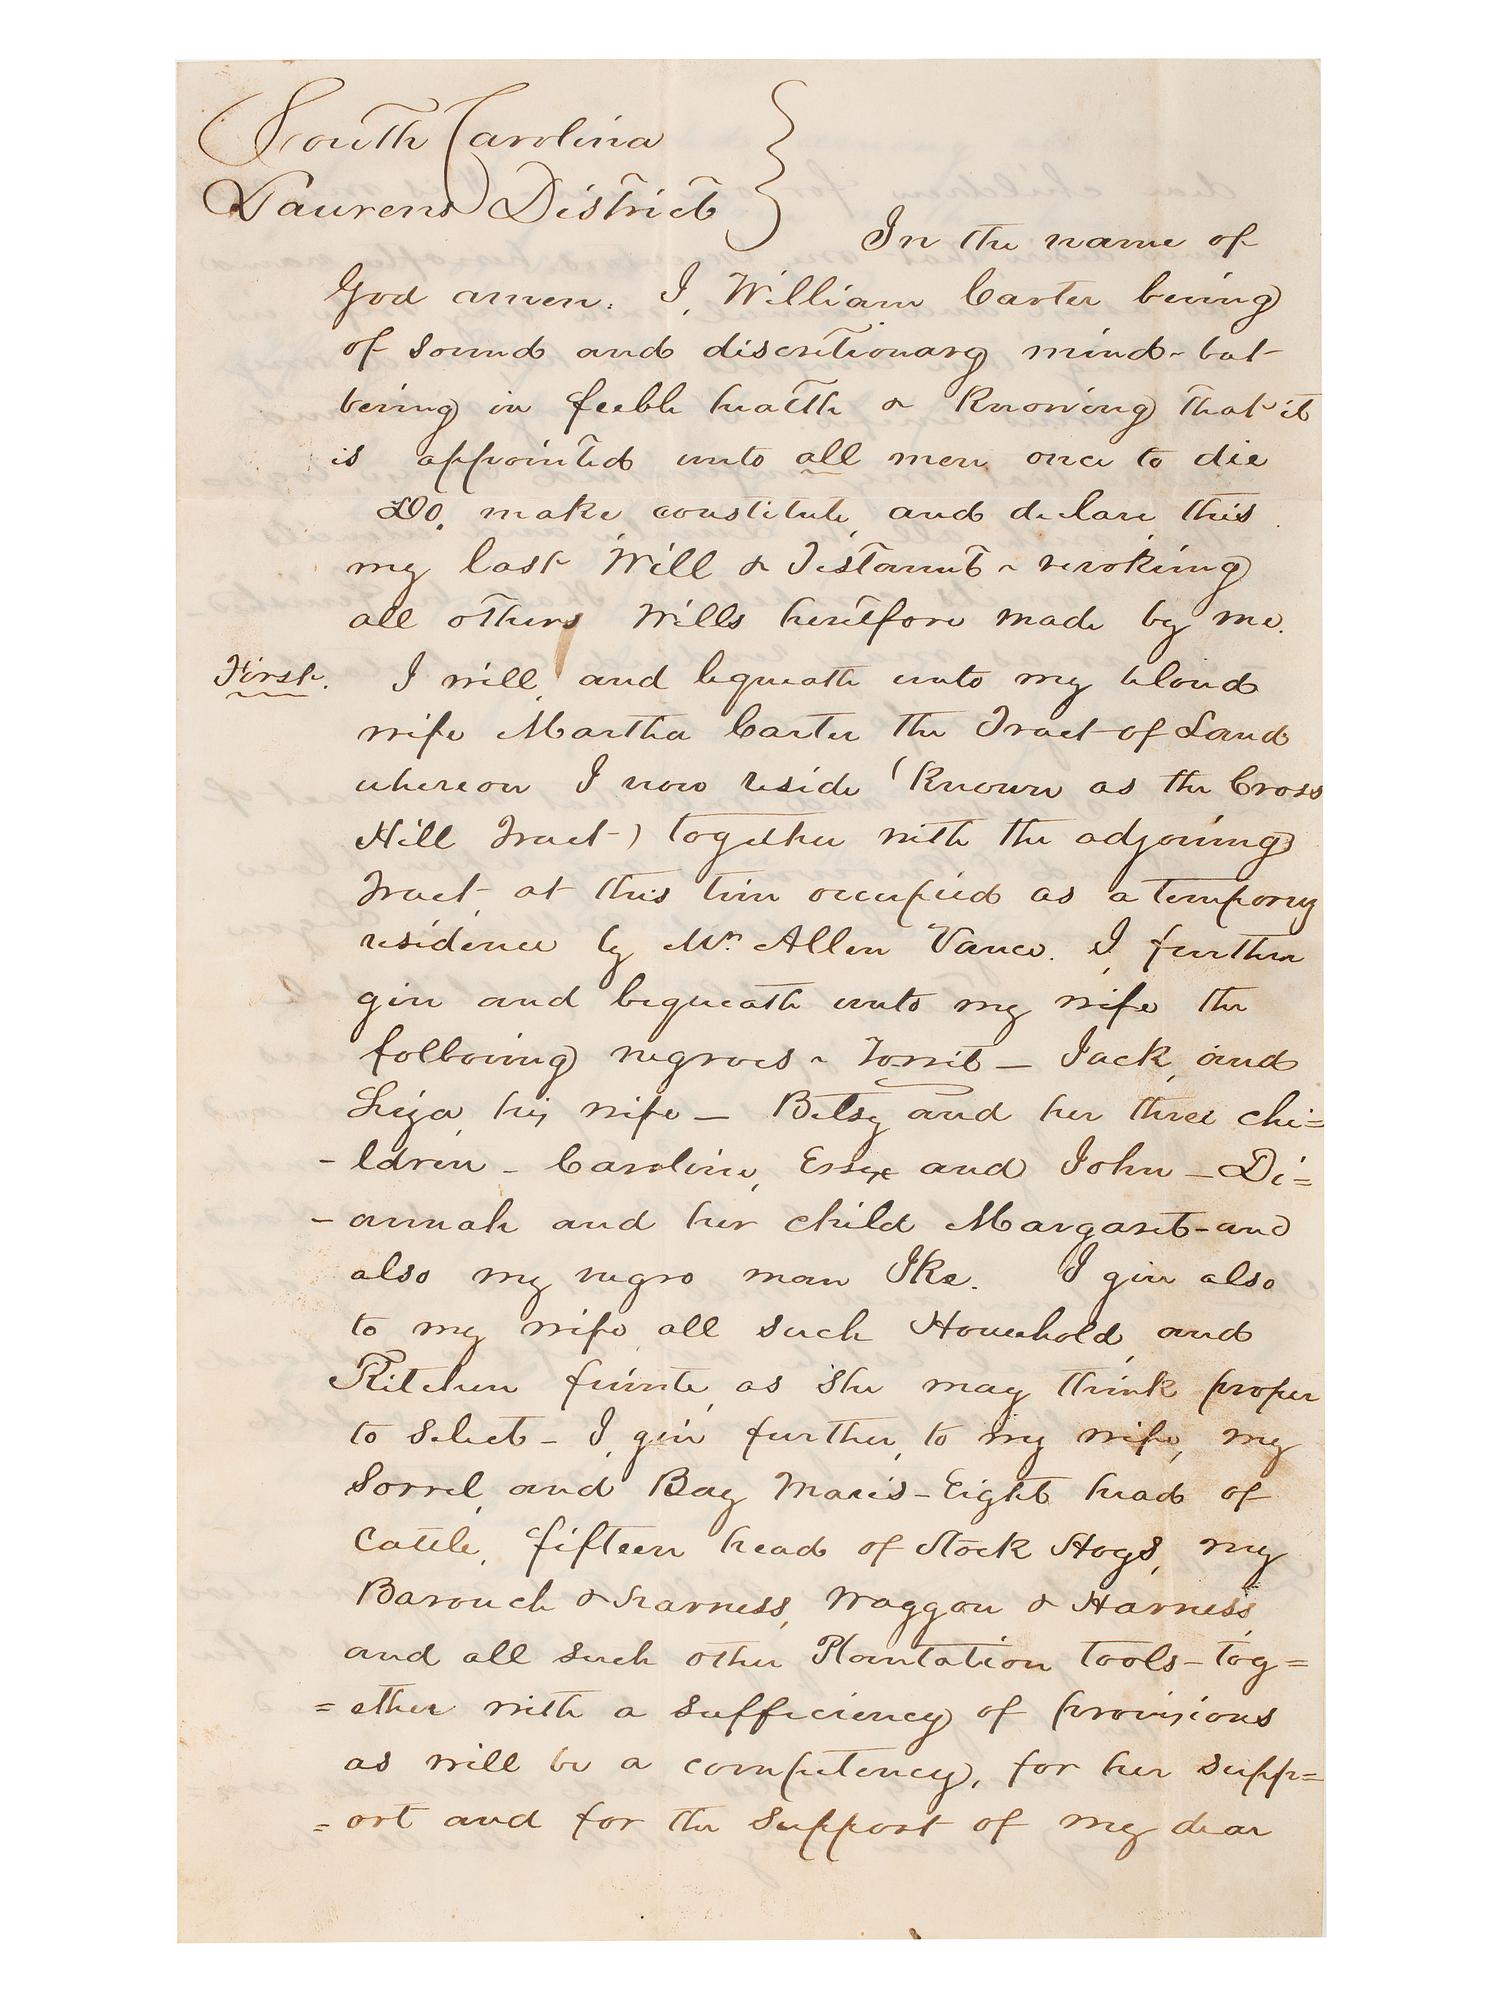 South Carolina
Laurens District
In the name of
God amen. I, William Carter being
of sound and discretionary mind - but
being in feeble health & Knowing that it
is appointed unto all men once to die
Do, make constitute, and declare this
my last Will & Testament - revoking
all others Wills heretofore made by me.
First. I will, and bequeath unto my beloved
wife Martha Carter the Tract of Land
whereon I now reside (Known as the Cross
Hill Tract) together with the adjoining
Tract at this time occupied as a temporry
residence by Mr. Allen Vance. I, further
give and bequeath unto my wife the
following negroes - - Jack, and
Liza, his wife - Betsy and her three chi=
- ldren - Caroline, Essex and John - Di=
- annah and her child Margaret - and
also my negro man Ike. I give also
to my wife, all such Household, and
Kitchen as she may think proper
to select - I, give further, to my wife, my
Sorrel, and Bay Mares - Eight head of
Cattle, fifteen head of Stock Hogs, my
Barouch & Harness, Waggon & Harness,
and all such other Plantation tools - tog=
= ether with a sufficiency of provisions
as will be a competency, for her supp=
= ort and for the support of my dear